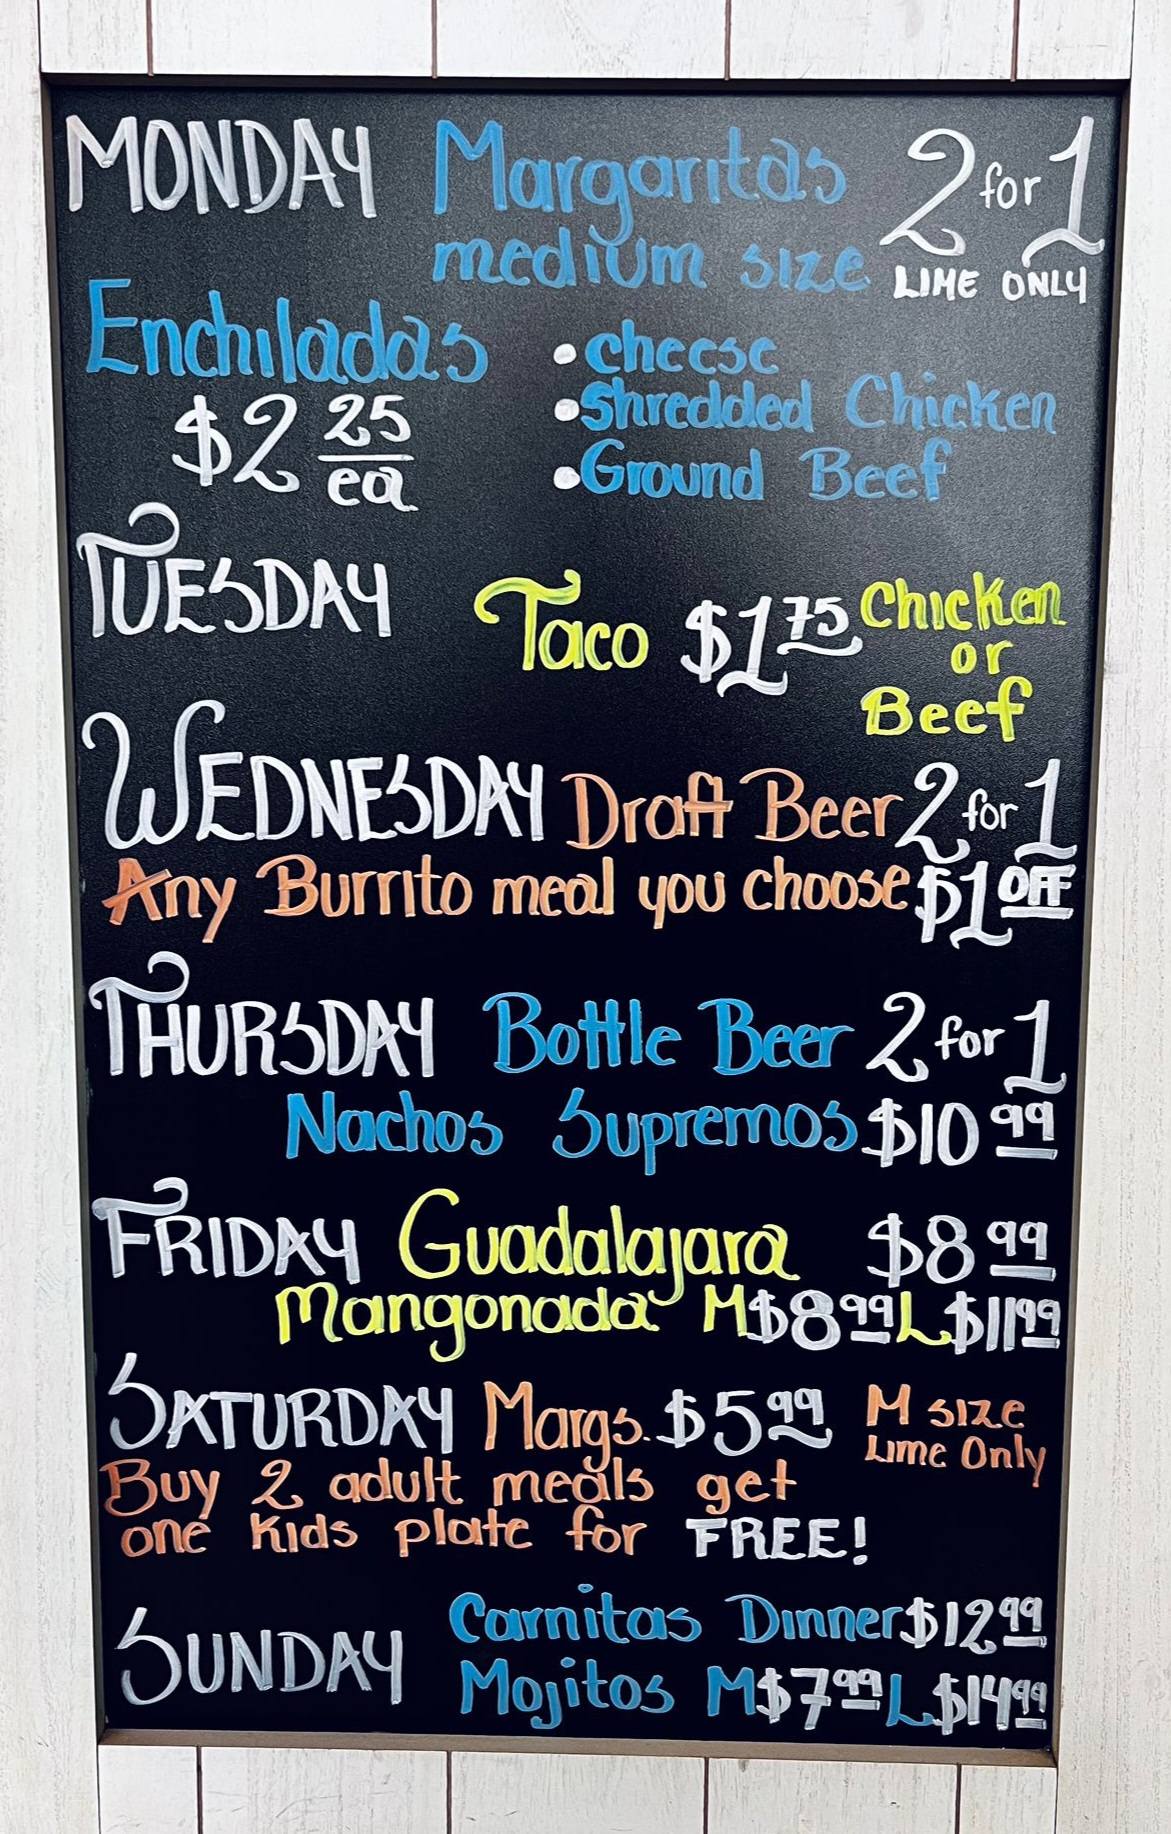 MONDAY Margaritas 2 for 1
medium size LIME ONLY
Enchiladas • cheese
$2 25 ea • Shredded Chicken
• Ground Beef
TUESDAY Taco $1 75 Chicken
or
Beef
WEDNESDAY Draft Beer 2 for 1
Any Burrito meal you choose $1 OFF
THURSDAY Bottle Beer 2 for 1
Nachos Supremos $10 99
FRIDAY Guadalajara $8 99
Mangonada M $8 99 L $11 99
SATURDAY Margs. $5 99 M size
Lime Only
Buy 2 adult meals get
one Kids plate for FREE!
SUNDAY Carnitas Dinner $12 99
Mojitos M $7 99 L $14 99